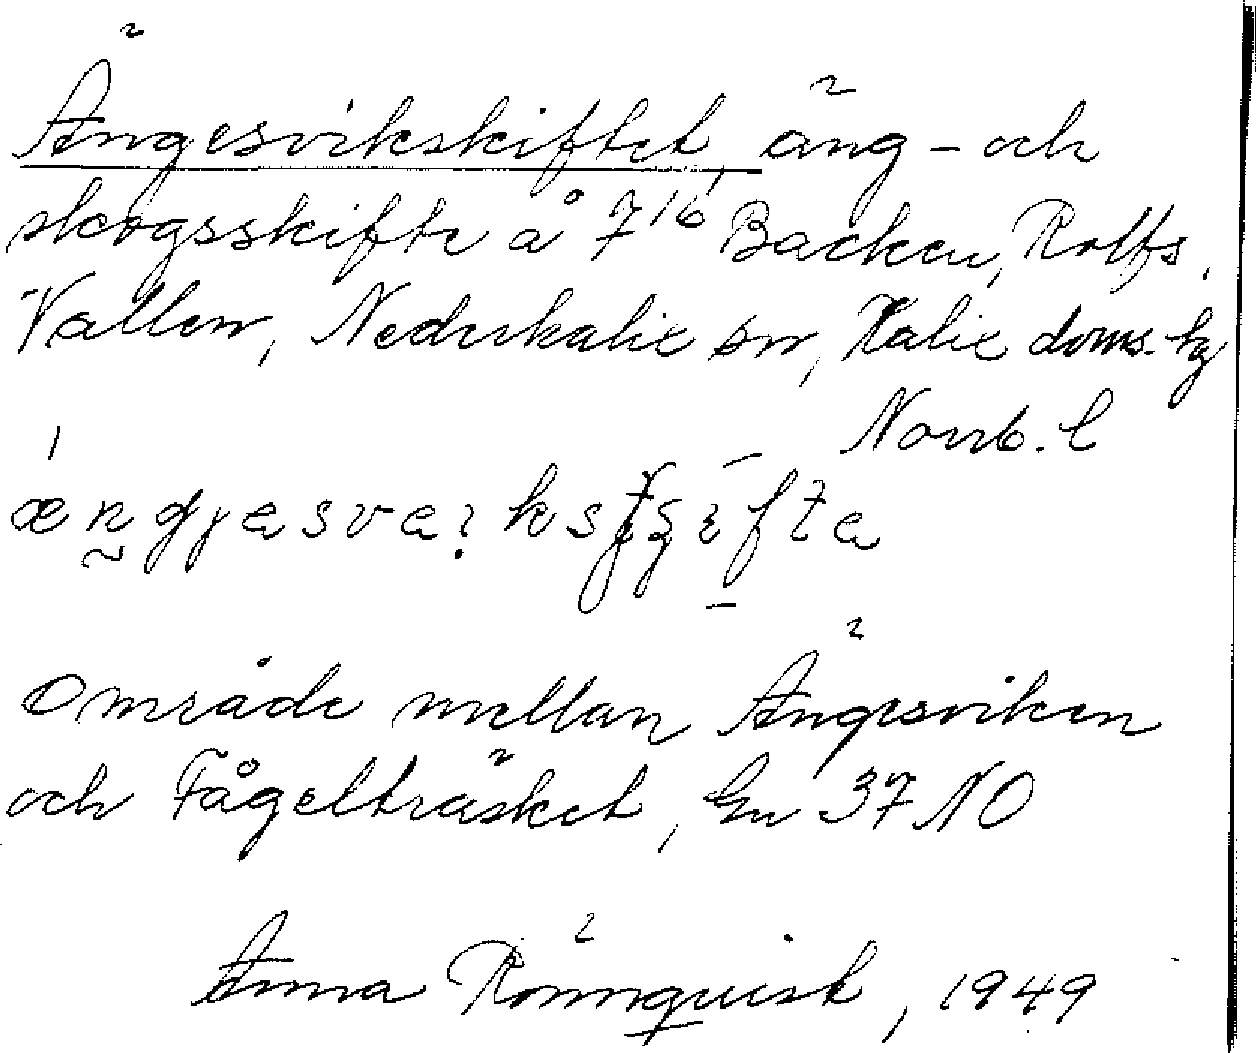 Ängesvikskiftet, äng- och
skogsskifte å 7¹⁶ Backen, Rolfs,
Vallen, Nederkalix sn, Kalix doms. tg
Norrb. l
område mellan Ängesviken
och Fågelträsket, Gn 37 NO
Anna Rönnquist, 1949